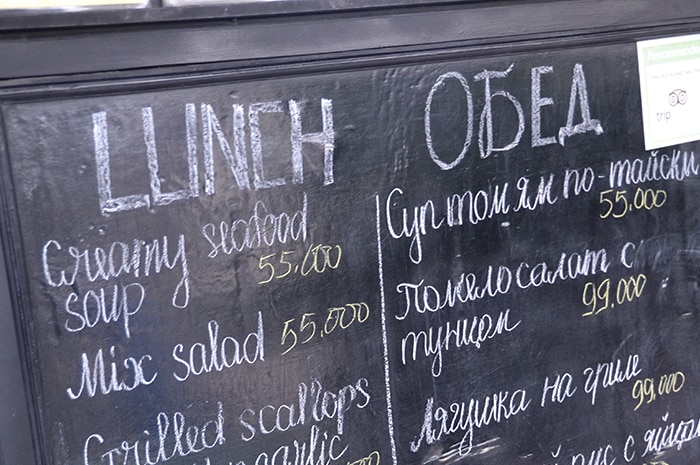 LUNCH
Creamy seafood
soup 55.000
Mix salad 55.000
Grilled scallops
garlic
ОБЕД
Суп том ям по-тайски
55.000
Помело салат с
тунцом 99.000
Лягушка на гриле
99.000
рис с яйцом
trip